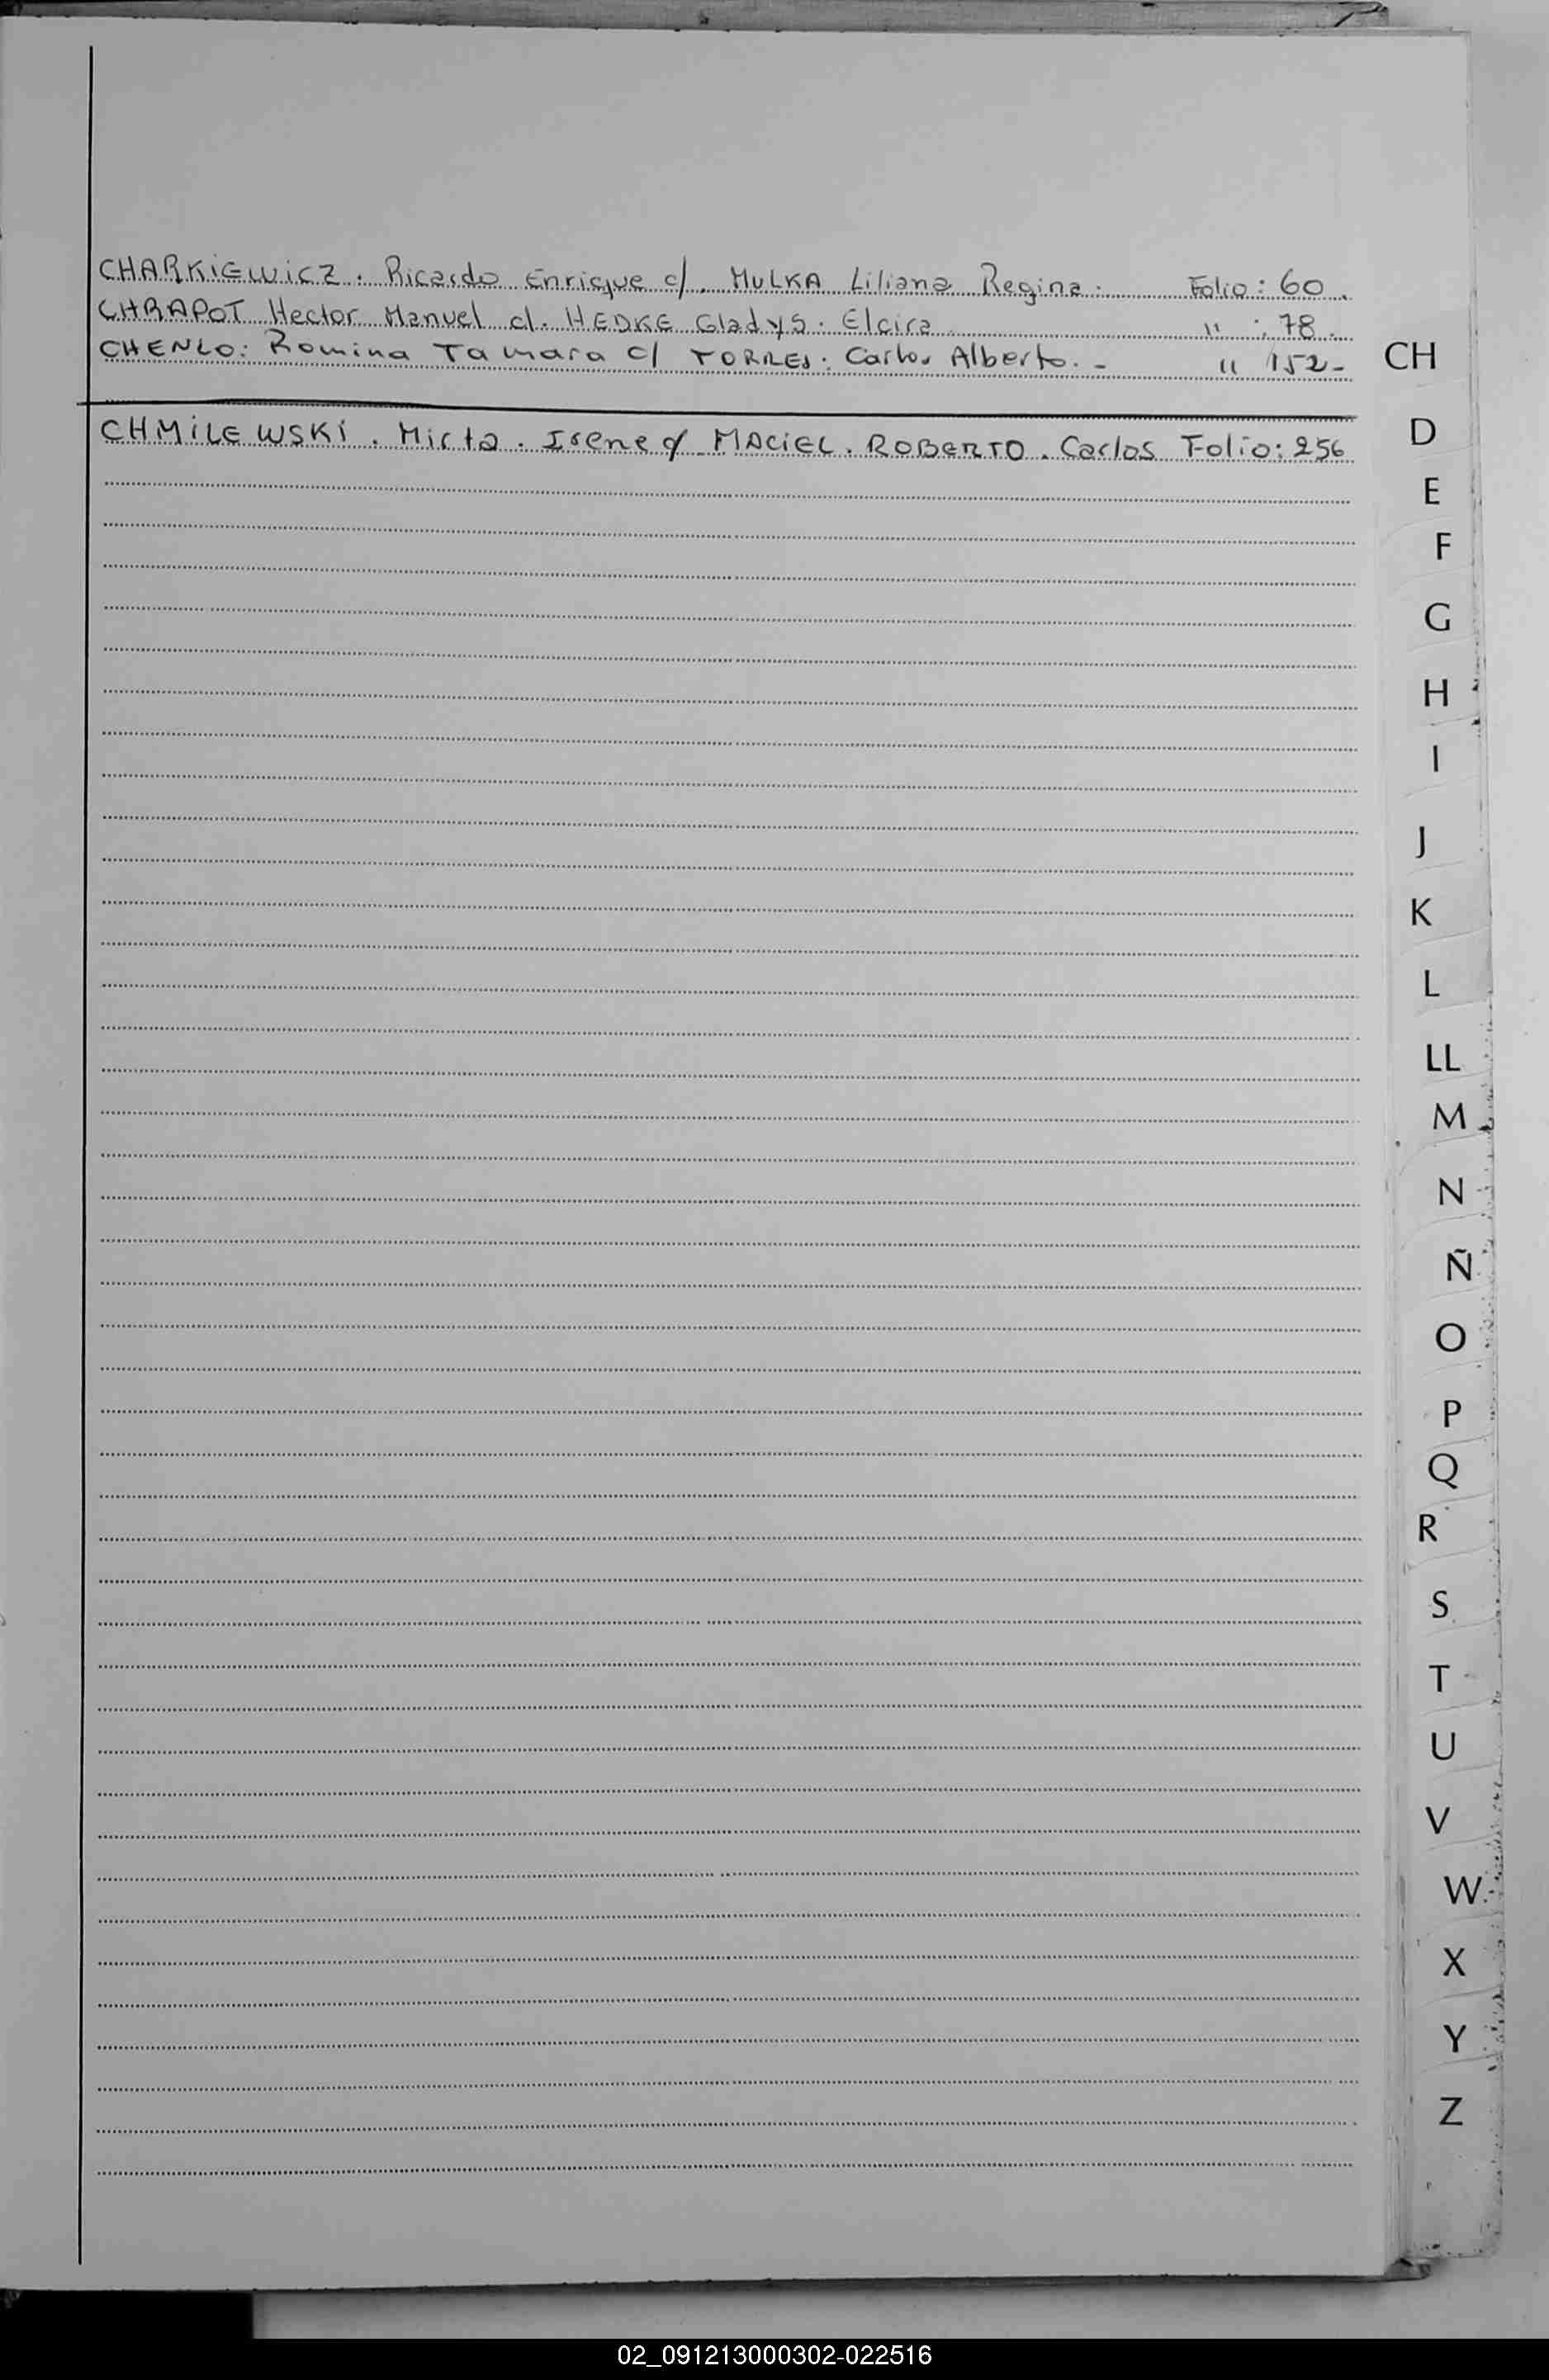 CHARKiEWiCZ. Ricardo Enrique c/. MULKA Liliana Regina. Folio: 60.
CHRAPOT Hector Manuel c/. HEDKE Gladys. Elcira " : 78.
CHENLO: Romina Tamara c/ TORRES. Carlos Alberto. - " 152-
CH
CHMiLEWSKi. Mirta. Irene c/ MACiEL. ROBERTO. Carlos Folio: 256
D
E
F
G
H
I
J
K
L
LL
M
N
Ñ
O
P
Q
R
S
T
U
V
W
X
Y
Z
02_091213000302-022516